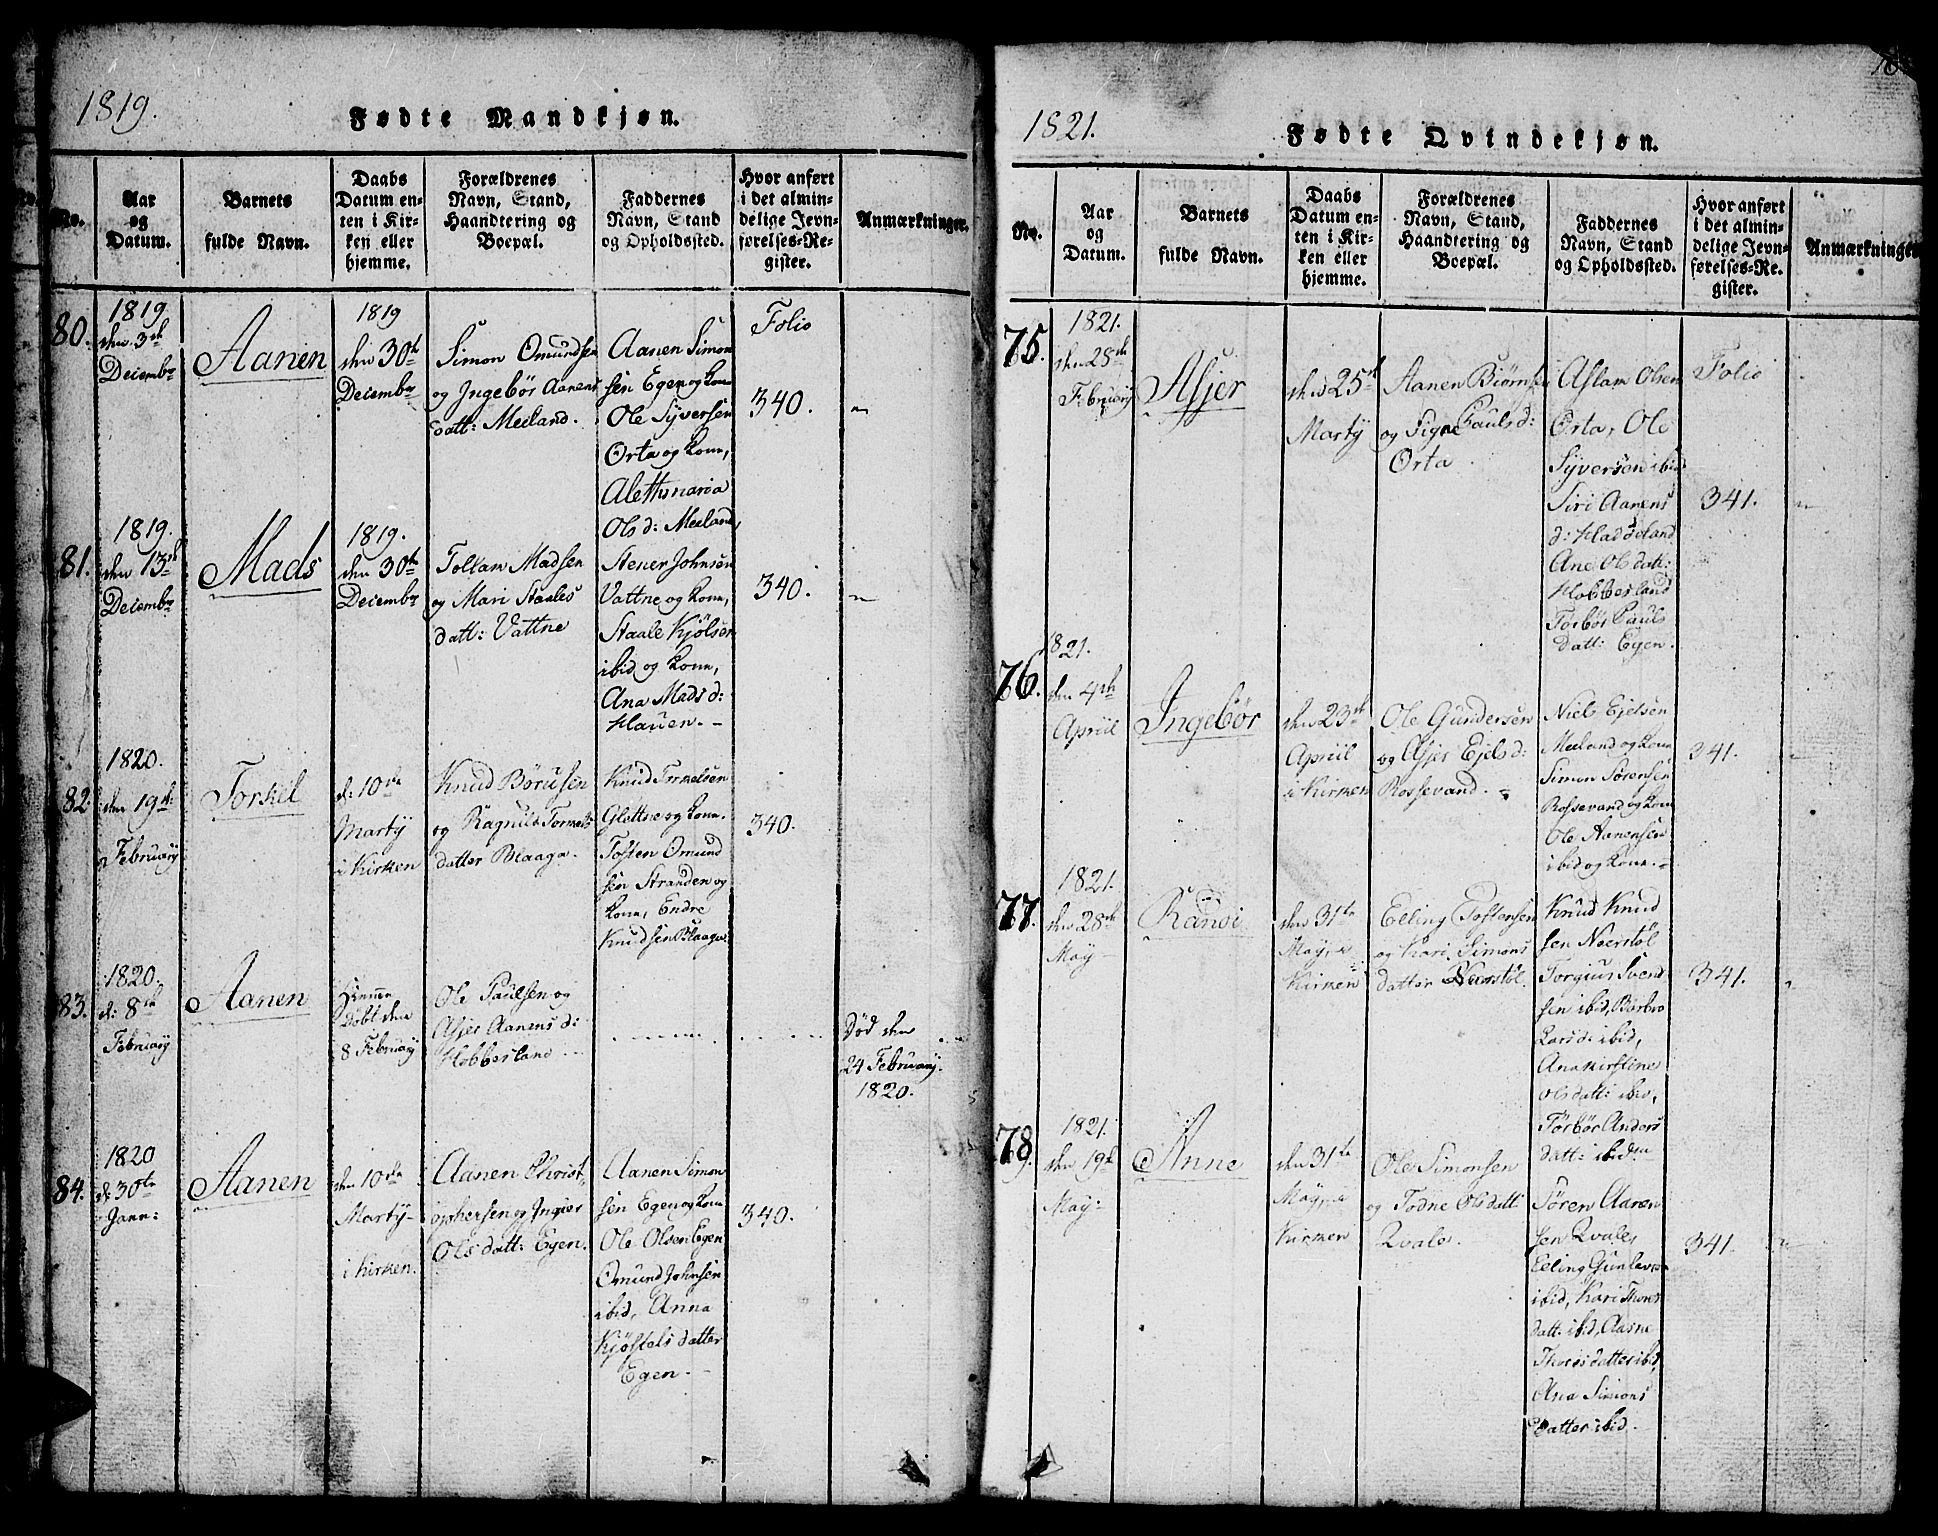 1819.
Fødte Mandkjøn.
No.
Aar
og
Datum.
Barnets
fulde Navn.
Daabs
Datum en-
ten i Kir-
ken eller
hjemme.
Forældrenes
Navn, Stand,
Haandtering og
Boepæl.
Faddernes
Navn, Stand
og Opholdssted.
Hvor anført
i det almin-
delige Jevn-
førelses-Re-
gister.
Anmærkninger.
80.
1819.
den 3de
Decembr
Aanen
1819
den 30te
Decembr
Simon Omundsen
og Ingebør Aanens
datt: Meeland.
Aanen Simon
sen Egen og kone
Ole Syversen
Orta og kone,
Olsd: Meeland,
Folio
340.
81.
1819.
den 13de
Decembr
Mads
1819.
den 30te
Decembr
Tollam Madsen
og Mari Staales
datt: Vattne
Stener Johnsen
Vattne og kone,
Staale Kjølsen
ibid og kone,
Ana Madsd:
Hauen.
340.
82.
1820.
den 19de
February
Torkel
d: 10de
Marty
i Kirken
Knud Børusen
og Ragnild Torkels
datter Blaaga.
Knud Torkelsen
Glettne og kone.
Tosten Omund
sen Stranden og
kone, Endre
Knudsen Blaaga
340.
83.
1820.
d: 8de
February
Aanen
Hiemme
Døbt den
8 February
Ole Paulsen og
Asjer Aanensd:
Hobbesland
Død den
24 February.
1820.
84.
1820
d: 30te
Janu:
Aanen
den 10de
Marty
i Kirken.
Aanen Christ
ophersen og Ingier
Olsdatt: Egen.
Aanen Simon
sen Egen og kone
Ole Olsen Egen
Omund Johnsen
ibid, Anna
Kjøstels datter
Egen.
340.
1821.
Fødte Qvindekjøn.
No.
Aar
og
Datum.
Barnets
fulde Navn.
Daabs
Datum en-
ten i Kir-
ken eller
hjemme.
Forældrenes
Navn, Stand,
Haandtering og
Boepæl.
Faddernes
Navn, Stand
og Opholdssted.
Hvor anført
i det almin-
delige Jevn-
førelses-Re-
gister.
Anmærkninger
75.
1821.
den 28de
February
Asjer
den 25de
Marty
Aanen Biørnsen
og Signe Paulsd:
Orta
Aslam Olsen
Orta, Ole
Syversen ibid
Siri Aanens
d:
Ane Olsdatt:
Hobbesland
Torbør Pauls
datt: Egen.
Folio
341.
76.
1821.
den 4de
Apriil
Ingebør
den 23de
Apriil
i Kirken
Ole Gundersen
og Asjer Ejelsd:
Rossevand.
Niels Ejelsen
Meeland og kone
Simon Sørensen
Rossevand og kone
Ole Aanensen
ibid og kone.
341.
77.
1821.
den 28de
May
Randi
den 31te
May, i
Kirken
Elling Tostensen
og Kari Simons
datter Neerstøl.
Knud Knud
sen Neerstøl
Torgius Svend
sen ibid, Barbro
Larsd: ibid,
Ana Kirstine
Olsdatt: ibid,
Torbør Anders
datt: ibidm
341.
78.
1821.
den 19de
May:
Anne
den 31te
May, i
Kirken
Ole Simonsen
og Todne Olsdatt:
Qvale.
Søren Aaren
sen Qvale,
Elling Gunlevsen
ibid, Kari Thores
datt: ibid, Aasne
Thores datter ibid,
Ana Simons
Datter ibid.
341.